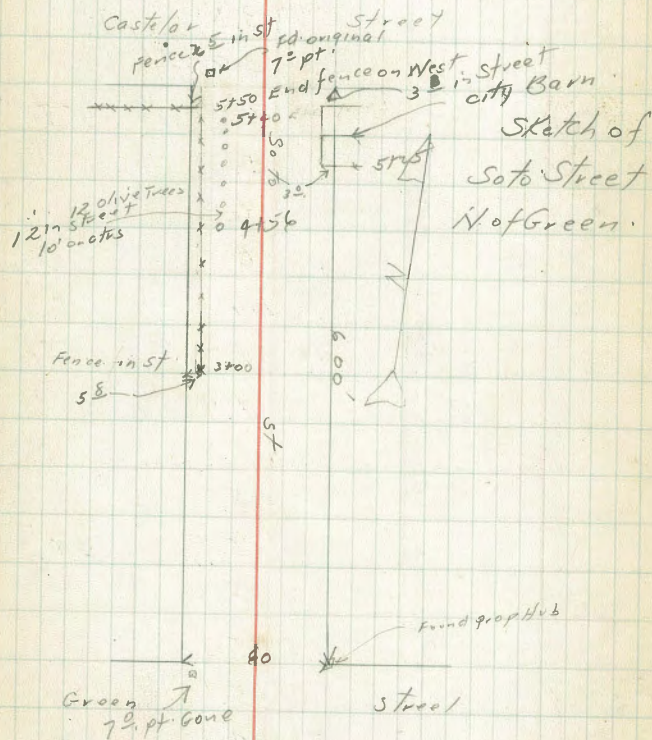 Castelar Street
Fence 5 in st
Fd original
7° pt.
5+50 End fence on West in Street
3
5+40
City Barn
Sketch of
Soto Street
N. of Green.
5+45
So to
3°
12 olive Trees
12 in street
10' on ctrs
4+56
N
600
Fence in st
3+00
5 8
St
Found prop Hub
60
Green Street
7° pt. Gone